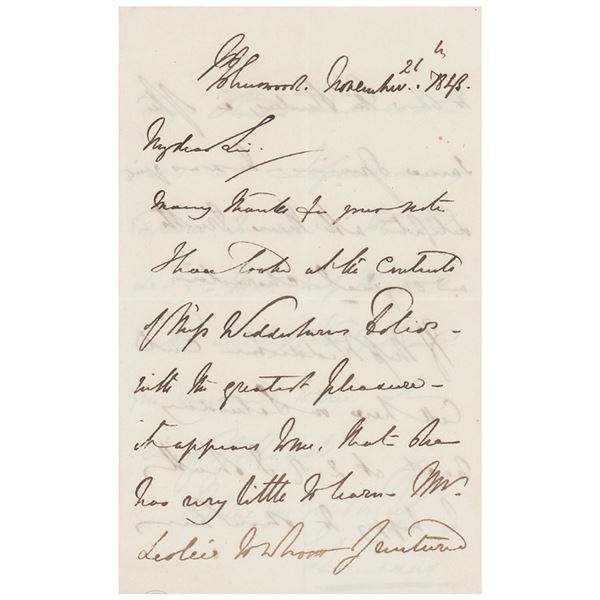 November 21st 1845.
My dear Sir.
Many thanks for your note
I have looked at the contents
of Miss Wedderburns Folios -
with the greatest pleasure -
it appears to me, that she
has very little to learn - Mr.
Leslie to whom I